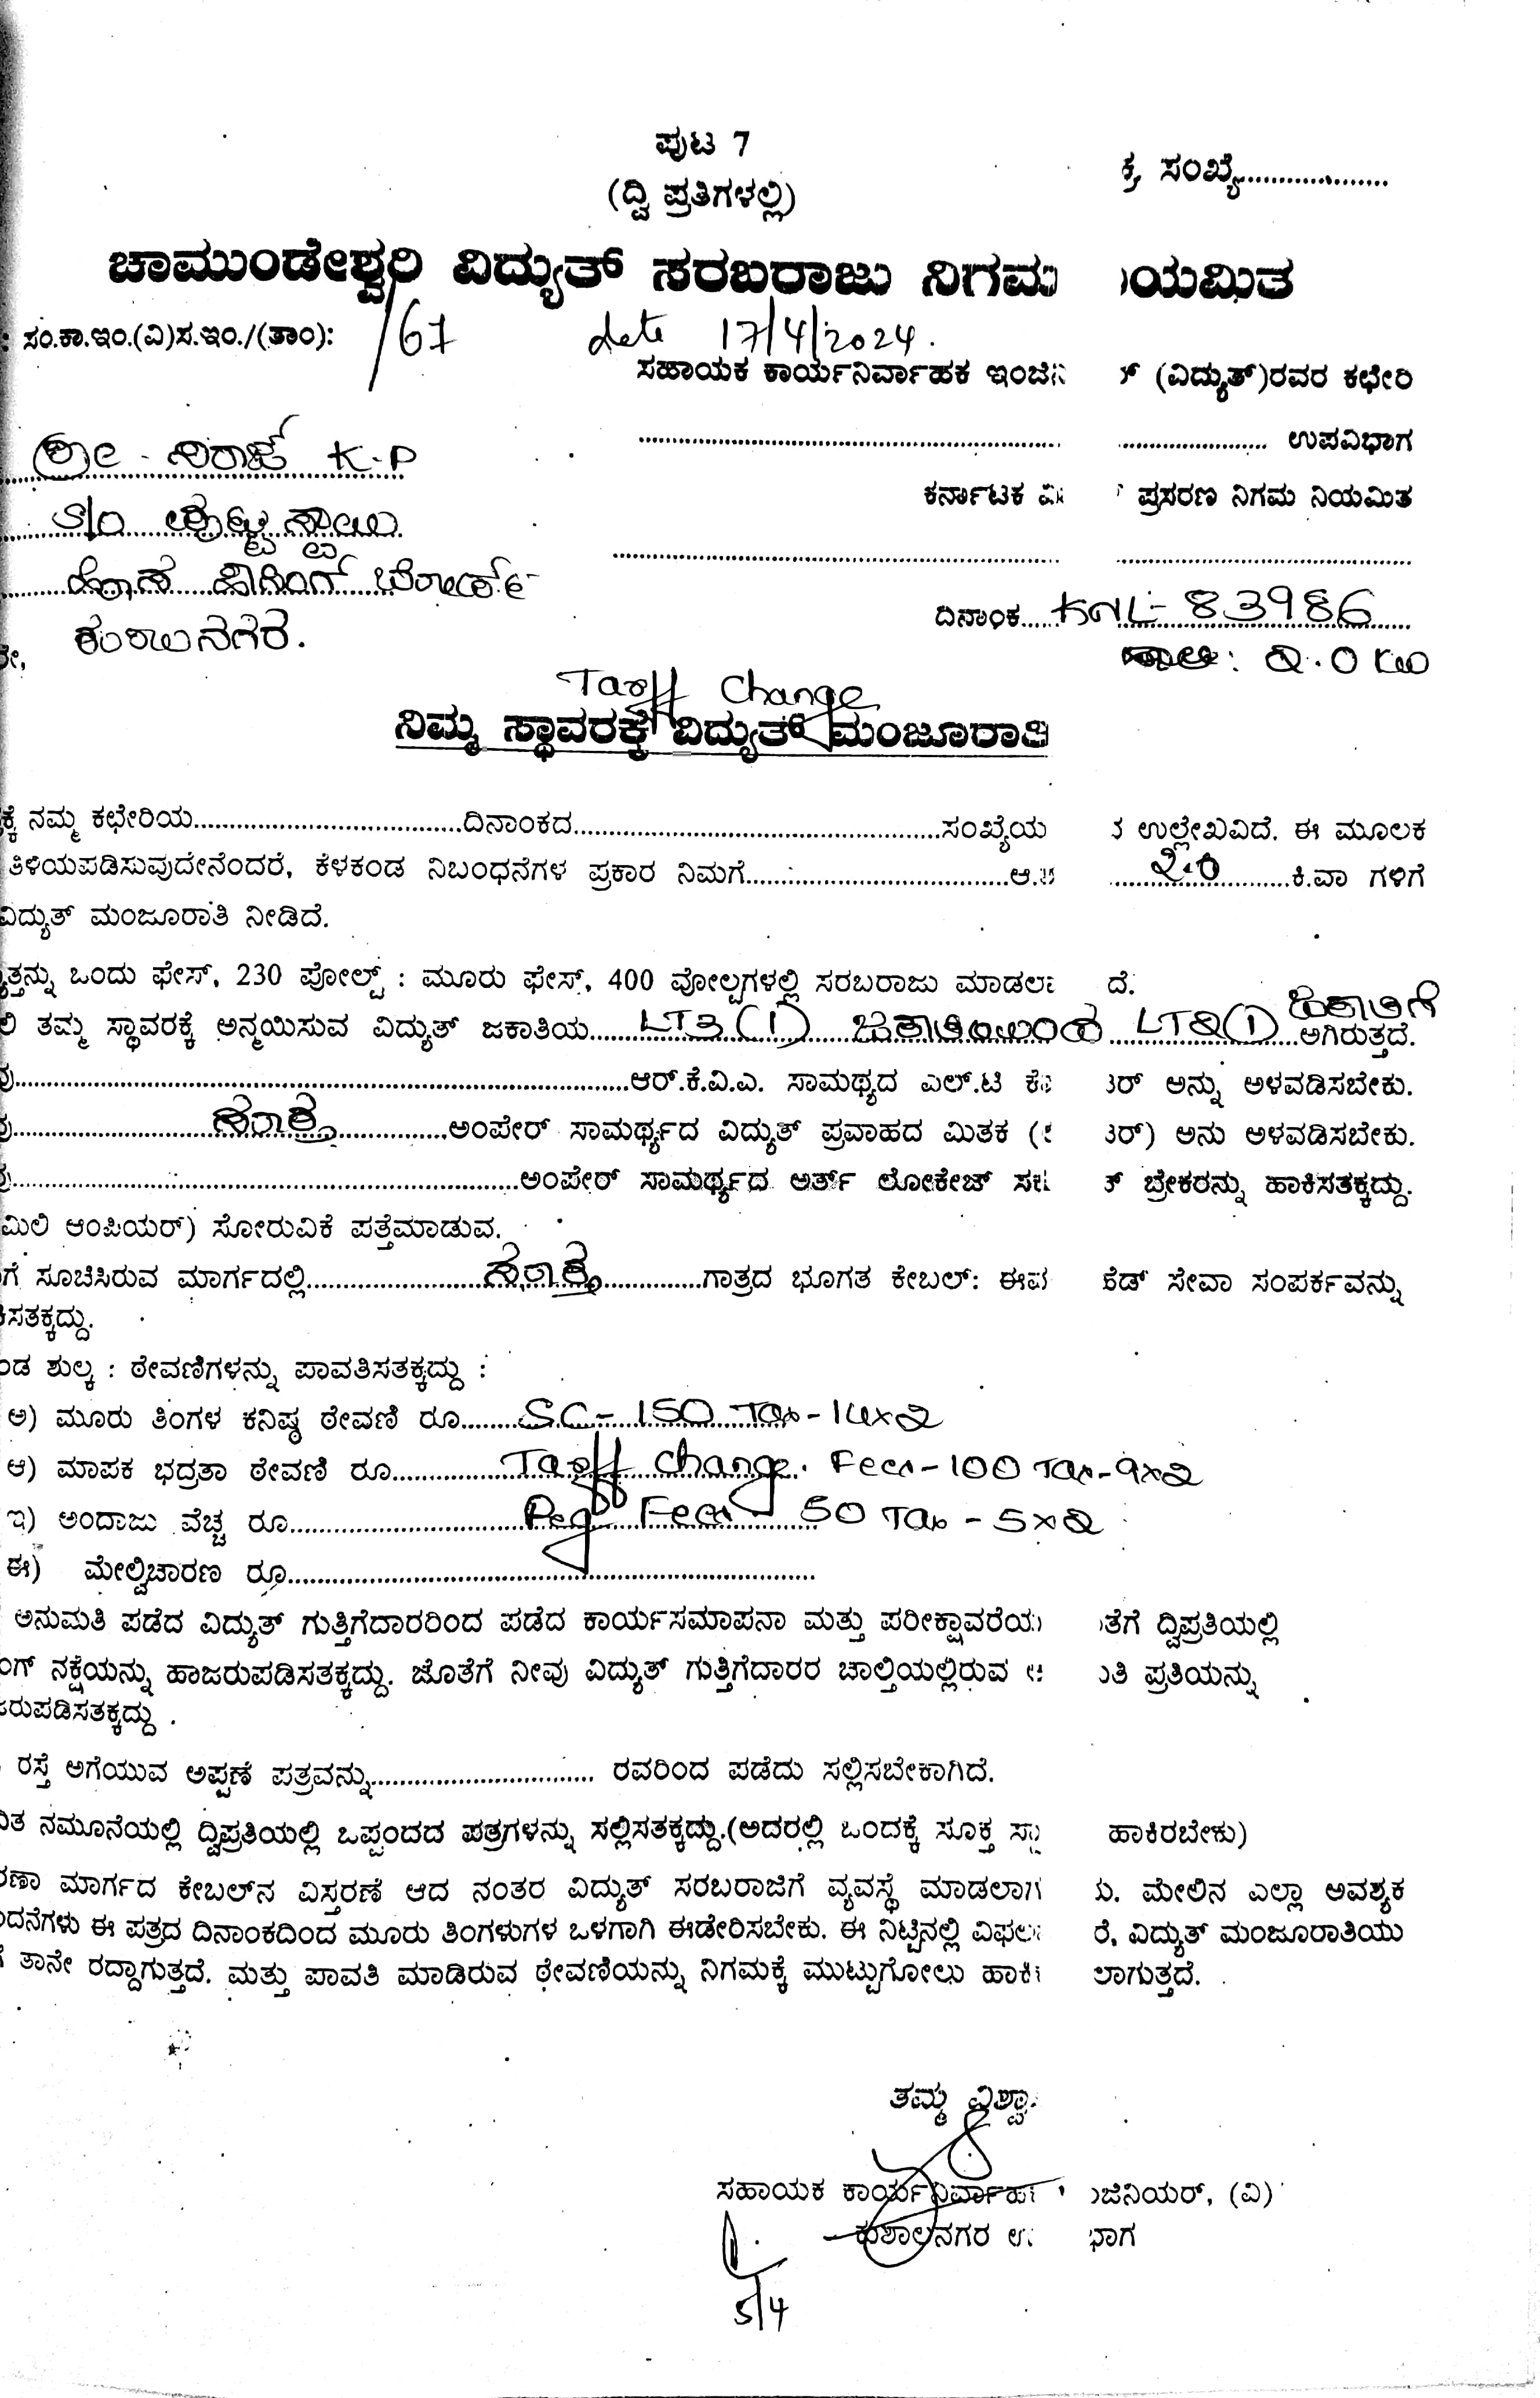 ಪುಟ 7
(ದ್ವಿ ಪ್ರತಿಗಳಲ್ಲಿ)
ಕ್ರ ಸಂಖ್ಯೆ....................
ಚಾಮುಂಡೇಶ್ವರಿ ವಿದ್ಯುತ್ ಸರಬರಾಜು ನಿಗಮ ಯಮಿತ
: ಸಂ.ಕಾ.ಇಂ.(ವಿ)ಸ.ಇಂ./(ತಾಂ): /67 date 17/4/2024.
ಸಹಾಯಕ ಕಾರ್ಯನಿರ್ವಾಹಕ ಇಂಜಿನಿ ರ್ (ವಿದ್ಯುತ್)ರವರ ಕಛೇರಿ
K.P
.................... ಉಪವಿಭಾಗ
S/O
ಕರ್ನಾಟಕ ವಿ ಪ್ರಸರಣ ನಿಗಮ ನಿಯಮಿತ
ದಿನಾಂಕ..... KNL- 83986
2.0 KW
Tariff Change
ನಿಮ್ಮ ಸ್ಥಾವರಕ್ಕೆ ವಿದ್ಯುತ್ ಮಂಜೂರಾತಿ
ಕ್ಕೆ ನಮ್ಮ ಕಛೇರಿಯ....................ದಿನಾಂಕದ....................ಸಂಖ್ಯೆಯ ಉಲ್ಲೇಖವಿದೆ. ಈ ಮೂಲಕ
ತಿಳಿಯಪಡಿಸುವುದೇನೆಂದರೆ, ಕೆಳಕಂಡ ನಿಬಂಧನೆಗಳ ಪ್ರಕಾರ ನಿಮಗೆ....................ಆ. ..........2.0..........ಕಿ.ವಾ ಗಳಿಗೆ
ವಿದ್ಯುತ್ ಮಂಜೂರಾತಿ ನೀಡಿದೆ.
ತ್ತನ್ನು ಒಂದು ಫೇಸ್, 230 ಪೋಲ್ಟ್ : ಮೂರು ಫೇಸ್, 400 ವೋಲ್ಟಗಳಲ್ಲಿ ಸರಬರಾಜು ಮಾಡಲಾ ದೆ.
ಲಿ ತಮ್ಮ ಸ್ಥಾವರಕ್ಕೆ ಅನ್ವಯಿಸುವ ವಿದ್ಯುತ್ ಜಕಾತಿಯ.....LT3(1) ಜಕಾತಿಯಿಂದ LT2(1) ಜಕಾತಿಗೆ ಆಗಿರುತ್ತದೆ.
ವು....................ಆರ್.ಕೆ.ವಿ.ಎ. ಸಾಮಥ್ಯದ ಎಲ್.ಟಿ ಕೆ ಟರ್ ಅನ್ನು ಅಳವಡಿಸಬೇಕು.
ವು....................ಅಂಪೇರ್ ಸಾಮರ್ಥ್ಯದ ವಿದ್ಯುತ್ ಪ್ರವಾಹದ ಮಿತಕ ( ಟರ್) ಅನು ಅಳವಡಿಸಬೇಕು.
ವು....................ಅಂಪೇರ್ ಸಾಮರ್ಥ್ಯದ ಅರ್ತ್ ಲೋಕೇಜ್ ಸರ್ ಟ್ ಬ್ರೇಕರನ್ನು ಹಾಕಿಸತಕ್ಕದ್ದು.
ಮಿಲಿ ಆಂಪಿಯರ್) ಸೋರುವಿಕೆ ಪತ್ತೆಮಾಡುವ.
ಗೆ ಸೂಚಿಸಿರುವ ಮಾರ್ಗದಲ್ಲಿ....................ಗಾತ್ರದ ಭೂಗತ ಕೇಬಲ್: ಈವ ಕೆಡ್ ಸೇವಾ ಸಂಪರ್ಕವನ್ನು
ಸತಕ್ಕದ್ದು.
ಂಡ ಶುಲ್ಕ : ಠೇವಣಿಗಳನ್ನು ಪಾವತಿಸತಕ್ಕದ್ದು :
ಅ) ಮೂರು ತಿಂಗಳ ಕನಿಷ್ಠ ಠೇವಣಿ ರೂ........SC- 150 Tax-14x2
ಆ) ಮಾಪಕ ಭದ್ರತಾ ಠೇವಣಿ ರೂ..........Tariff change. Fees-100 Tax-9x2
ಇ) ಅಂದಾಜು ವೆಚ್ಚ ರೂ....................Reg Fees 50 Tax - 5x2
ಈ) ಮೇಲ್ವಿಚಾರಣ ರೂ....................
ಅನುಮತಿ ಪಡೆದ ವಿದ್ಯುತ್ ಗುತ್ತಿಗೆದಾರರಿಂದ ಪಡೆದ ಕಾರ್ಯಸಮಾಪನಾ ಮತ್ತು ಪರೀಕ್ಷಾವರೆಯ ತೆಗೆ ದ್ವಿಪ್ರತಿಯಲ್ಲಿ
ಂಗ್ ನಕ್ಷೆಯನ್ನು ಹಾಜರುಪಡಿಸತಕ್ಕದ್ದು. ಜೊತೆಗೆ ನೀವು ವಿದ್ಯುತ್ ಗುತ್ತಿಗೆದಾರರ ಚಾಲ್ತಿಯಲ್ಲಿರುವ ತಿ ಪ್ರತಿಯನ್ನು
ಜರುಪಡಿಸತಕ್ಕದ್ದು .
ರಸ್ತೆ ಅಗೆಯುವ ಅಪ್ಪಣೆ ಪತ್ರವನ್ನು.................... ರವರಿಂದ ಪಡೆದು ಸಲ್ಲಿಸಬೇಕಾಗಿದೆ.
ಿತ ನಮೂನೆಯಲ್ಲಿ ದ್ವಿಪ್ರತಿಯಲ್ಲಿ ಒಪ್ಪಂದದ ಪತ್ರಗಳನ್ನು ಸಲ್ಲಿಸತಕ್ಕದ್ದು.(ಅದರಲ್ಲಿ ಒಂದಕ್ಕೆ ಸೂಕ್ತ ಸ್ಟಾ ಹಾಕಿರಬೇಕು)
ರಣಾ ಮಾರ್ಗದ ಕೇಬಲ್‌ನ ವಿಸ್ತರಣೆ ಆದ ನಂತರ ವಿದ್ಯುತ್ ಸರಬರಾಜಿಗೆ ವ್ಯವಸ್ಥೆ ಮಾಡಲಾಗ ು. ಮೇಲಿನ ಎಲ್ಲಾ ಅವಶ್ಯಕ
ದನೆಗಳು ಈ ಪತ್ರದ ದಿನಾಂಕದಿಂದ ಮೂರು ತಿಂಗಳುಗಳ ಒಳಗಾಗಿ ಈಡೇರಿಸಬೇಕು. ಈ ನಿಟ್ಟಿನಲ್ಲಿ ವಿಫಲ ರೆ, ವಿದ್ಯುತ್ ಮಂಜೂರಾತಿಯು
ತಾನೇ ರದ್ದಾಗುತ್ತದೆ. ಮತ್ತು ಪಾವತಿ ಮಾಡಿರುವ ಠೇವಣಿಯನ್ನು ನಿಗಮಕ್ಕೆ ಮುಟ್ಟುಗೋಲು ಹಾಕಿ ಲಾಗುತ್ತದೆ.
ತಮ್ಮ ವಿಶ್ವಾ
ಸಹಾಯಕ ಕಾರ್ಯನಿರ್ವಾಹ ಂಜಿನಿಯರ್, (ವಿ)
ಕುಶಾಲನಗರ ಉ ಭಾಗ
5/4